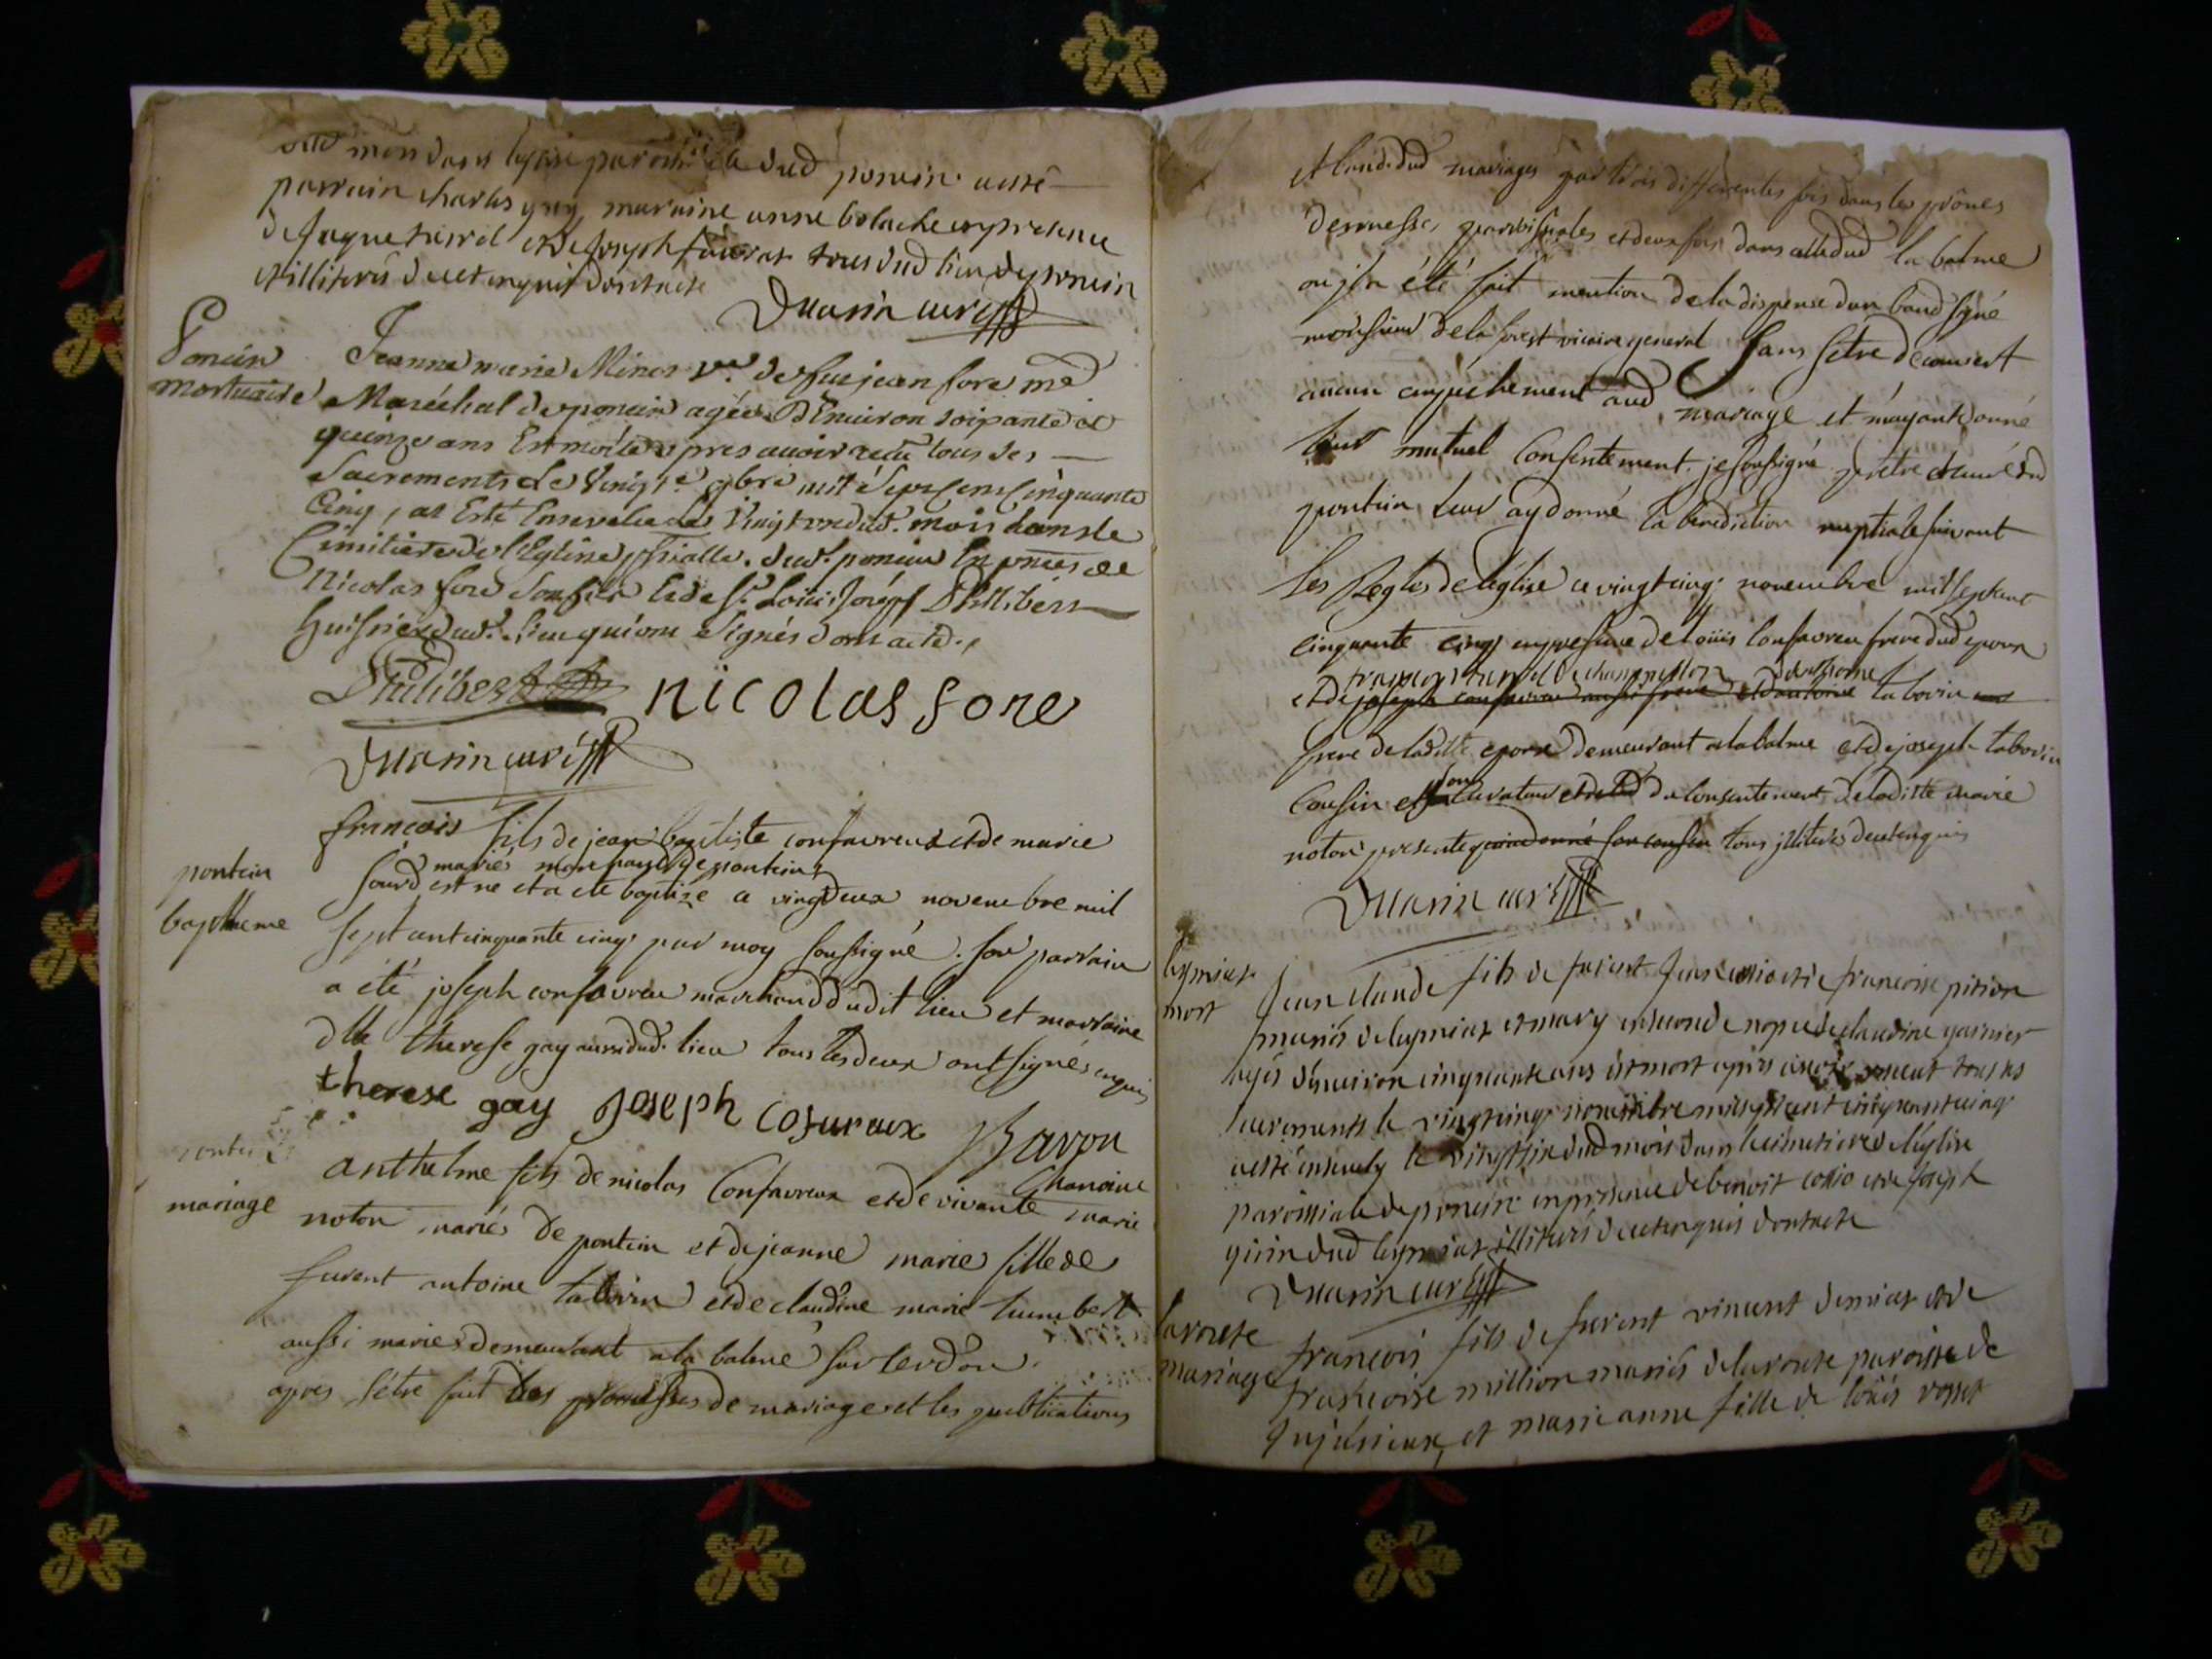 dud mois dans leglise paroissialle dud poncin ausse
parrain charles guy, maraine anne bolache en presence
de Jaque et de Joseph tous dud lieu de poncin
et illiterés de ce enquis dont acte
Dmarin curé
Poncin
mortuaire
Jeanne marie Minos v.e de fue jean fore me
Maréchal de poncin agée D'Enuiron soixante et
quinze ans Est morte apres auoir recu tous Ses
Sacrements Le Vingt 9bre mil Sept Cens Cinquante
Cinq, at Esté Enseuelie Le Vingt dud. mois dans le
Cimitiere de l'Eglise pssialle. dud. poncin En pnces de
Nicolas fore Son fils Et de Sr. Loüis Joseph Philibert
huissier dud. Lieu qui ont Signés Dont acte.
Philibert nicolas fore
Dmarin curé
pontcin
baptheme
françois fils de jean baptiste confavreux et de marie
marié mon paroisse de pontcin
sourd est ne et a eté baptizé a vingt deux novembre mil
sept cent cinquante cinq par moy soussigné. son parrain
a été joseph confavreu marchand dudit lieu et marraine
dlle therese gay aussi dud. lieu tous les deux ont signés enquis
therese gay joseph cosuraux Bavon
Chanoine
pontcin
mariage
anthelme fils de nicolas Confavreux et de vivante marie
noton mariés de pontcin et de jeanne marie fille de
furent antoine tabovin et de claudine marie humbert
aussi mariés demeurant a la balme sur cerdon
apres s'etre fait les promesses de mariage et les publications
et band. dud mariages par trois differentes fois dans les prônes
de messes parroissiales et deux fois dans celle dud la balme
ou il n'a été fait mention de la dispense d'un band signé
monsieur de la forest vicaire general Sans s'etre découvert
aucun empéchement aud mariage et m'ayant donné
leur mutuel Consentement. je soussigné pretre et curé dud
pontcin leur ay donné la benediction nuptiale suivant
les Regles de l'église ce vingt cinq novembre mil sept cent
cinquante cinq en presence de loüis Confavreu frere dud epoux
de champollon d'anthoine
et de joseph confavreu aussi frere et d'antoine tabovin
frere de laditte epouse demeurant a la balme et de joseph tabovin
Cousin et son curateur et de lad du consentement de laditte marie
noton presente qui a donné son consen tous illiteres de ce enquis
Dmarin curé
leymiat
mort
Jean claude fils de furent Jean cottio et de francoise pition
mariés de leymiat et mary en seconde nopce de claudine garnier
agés d'enuiron cinquante ans est mort apres auoir receut tous ses
sacrements le vingt cinq nouembre mil sept cent cinquante cinq
a esté enseuely le vingt six dud mois dans le cimetiere de l'eglise
paroissiale de poncin en presence de benoit cottio et de Joseph
dud leymiat illiterés de ce enquis dont acte
Dmarin curé
lavoute
mariage
francois fils de furent vincent demiat et de
francoise million mariés de la voute paroisse de
Jujurieux, et marie anne fille de loüis rosset